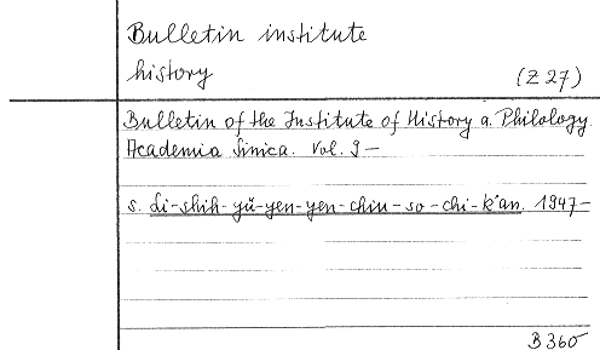 Bulletin institute
history
(Z 27)
Bulletin of the Institute of History a. Philology.
Academia Sinica. Vol. 9 –
s. Li-shih-yü-yen-yen-chiu-so-chi-k'an. 1947–
B 360